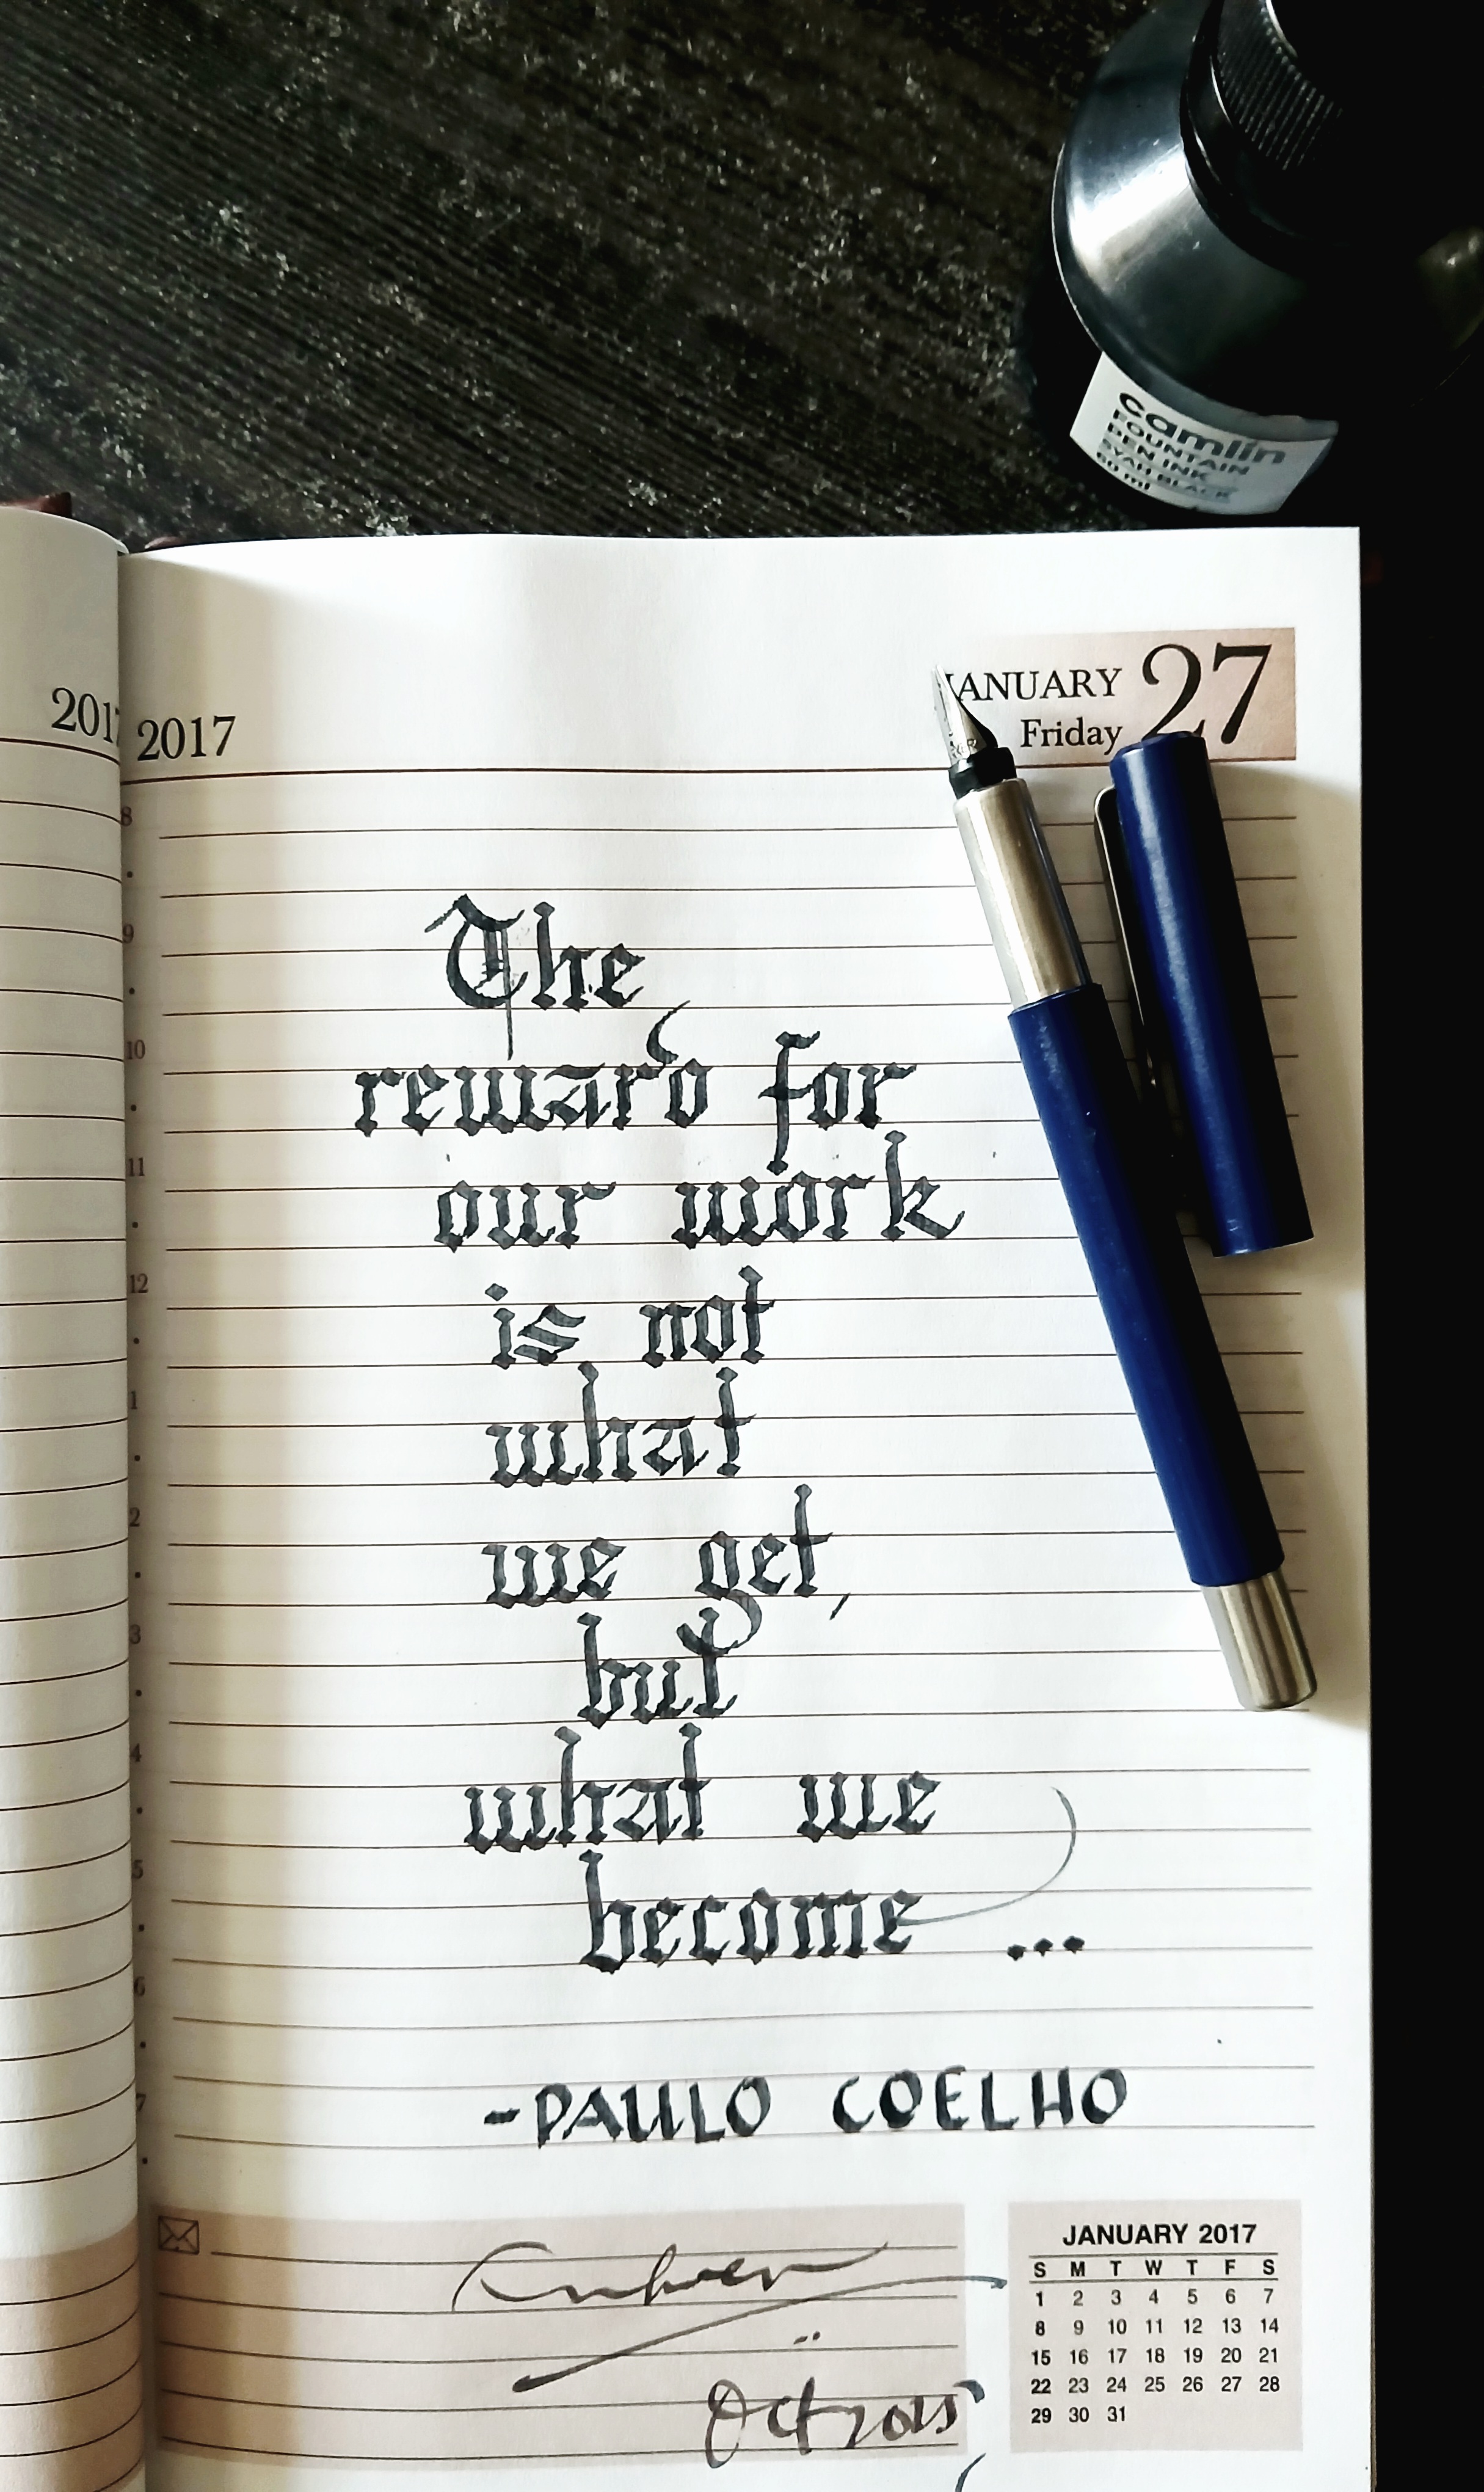 camlin
FOUNTAIN
PEN INK
SYAHI BLACK
60 ml
2017
2017
JANUARY 27
Friday
8
9
10
11
12
1
2
3
4
5
6
7
The
reward for
our work
is not
what
we get,
but
what we
become ...
-PAULO COELHO
JANUARY 2017
S M T W T F S
1 2 3 4 5 6 7
8 9 10 11 12 13 14
15 16 17 18 19 20 21
22 23 24 25 26 27 28
29 30 31